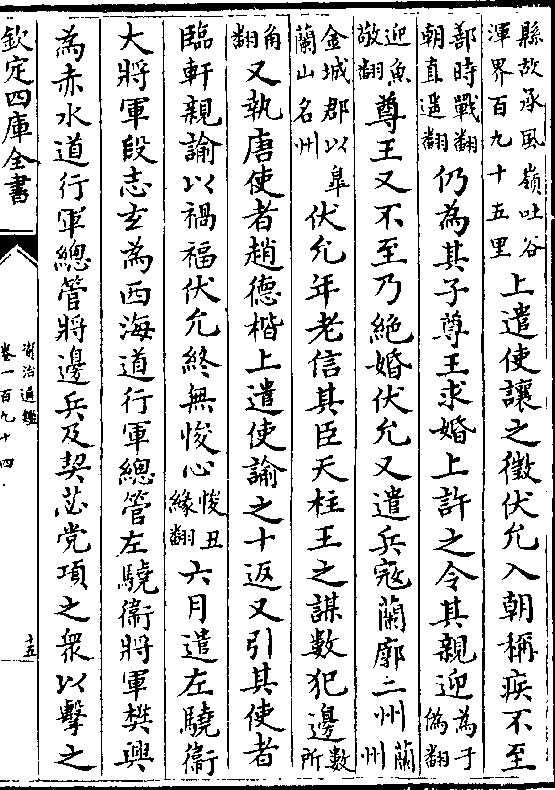 縣故承風嶺吐谷
渾界百九十五里
上遣使讓之徵伏允入朝稱疾不至
鄯時戰翻
朝直遥翻
仍為其子尊王求婚上許之令其親迎
為于
偽翻
迎魚
敬翻
尊王又不至乃絶婚伏允又遣兵寇蘭廓二州
蘭
州
金城郡以
蘭山名州
皐
伏允年老信其臣天柱王之謀數犯邊
數
所
角
翻
又執唐使者趙德楷上遣使諭之十返又引其使者
臨軒親諭以禍福伏允終無悛心
悛丑
緣翻
六月遣左驍衛
大將軍段志玄為西海道行軍總管左驍衛將軍樊興
為赤水道行軍總管將邊兵及契苾党項之衆以擊之
欽定四庫全書
資治通鑑
卷一百九十四
十五